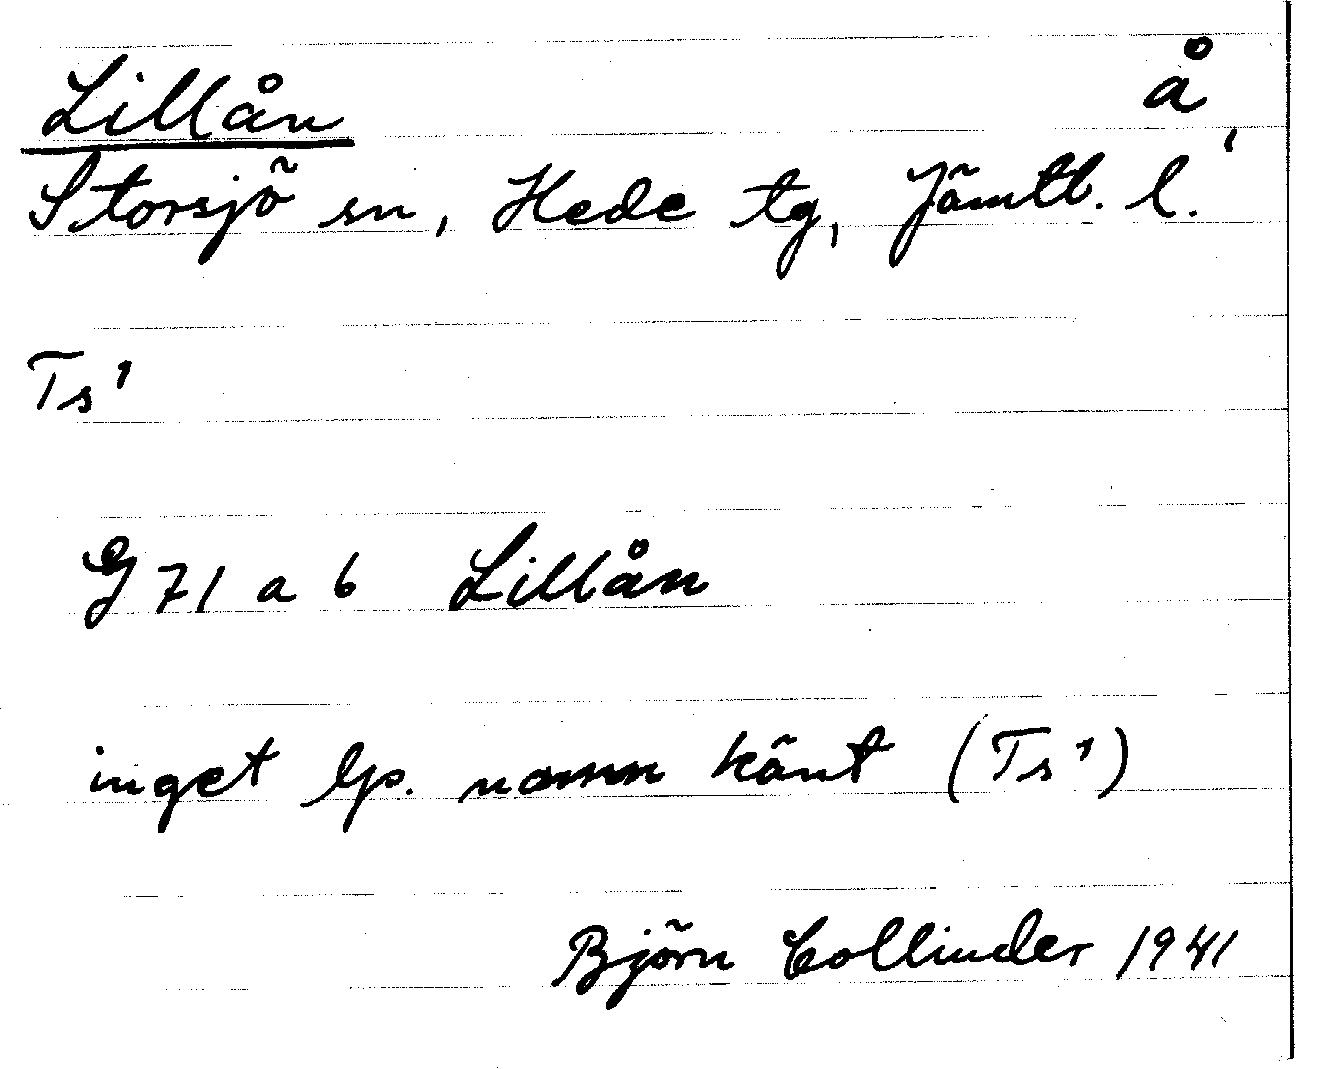 Lillån å
Storsjö sn, Hede tg, Jämtl. l.
Ts¹
G 71 a 6 Lillån
inget lp. namn känt (Ts¹)
Björn Collinder 1941